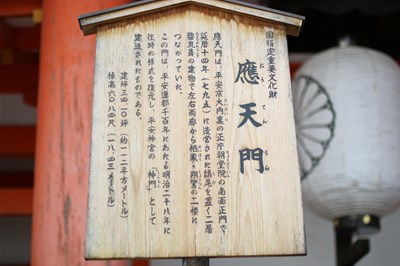 国指定重要文化財
應天門
おうてんもん
應天門は、平安京大内裏の正庁朝堂院の南面正門で
延暦十四年（七九五）に造営された鴟尾を置く二層
碧瓦葺の建物で左右両廊から栖鳳・翔鸞の二楼に
つながっていた。
この門は、平安遷都千百年にあたる明治二十八年に
往時の様式を復元し、平安神宮の「神門」として
建造されたものである。
建坪三四・一〇坪（約一一二平方メートル）
棟高六〇・八四尺（一八・四三メートル）